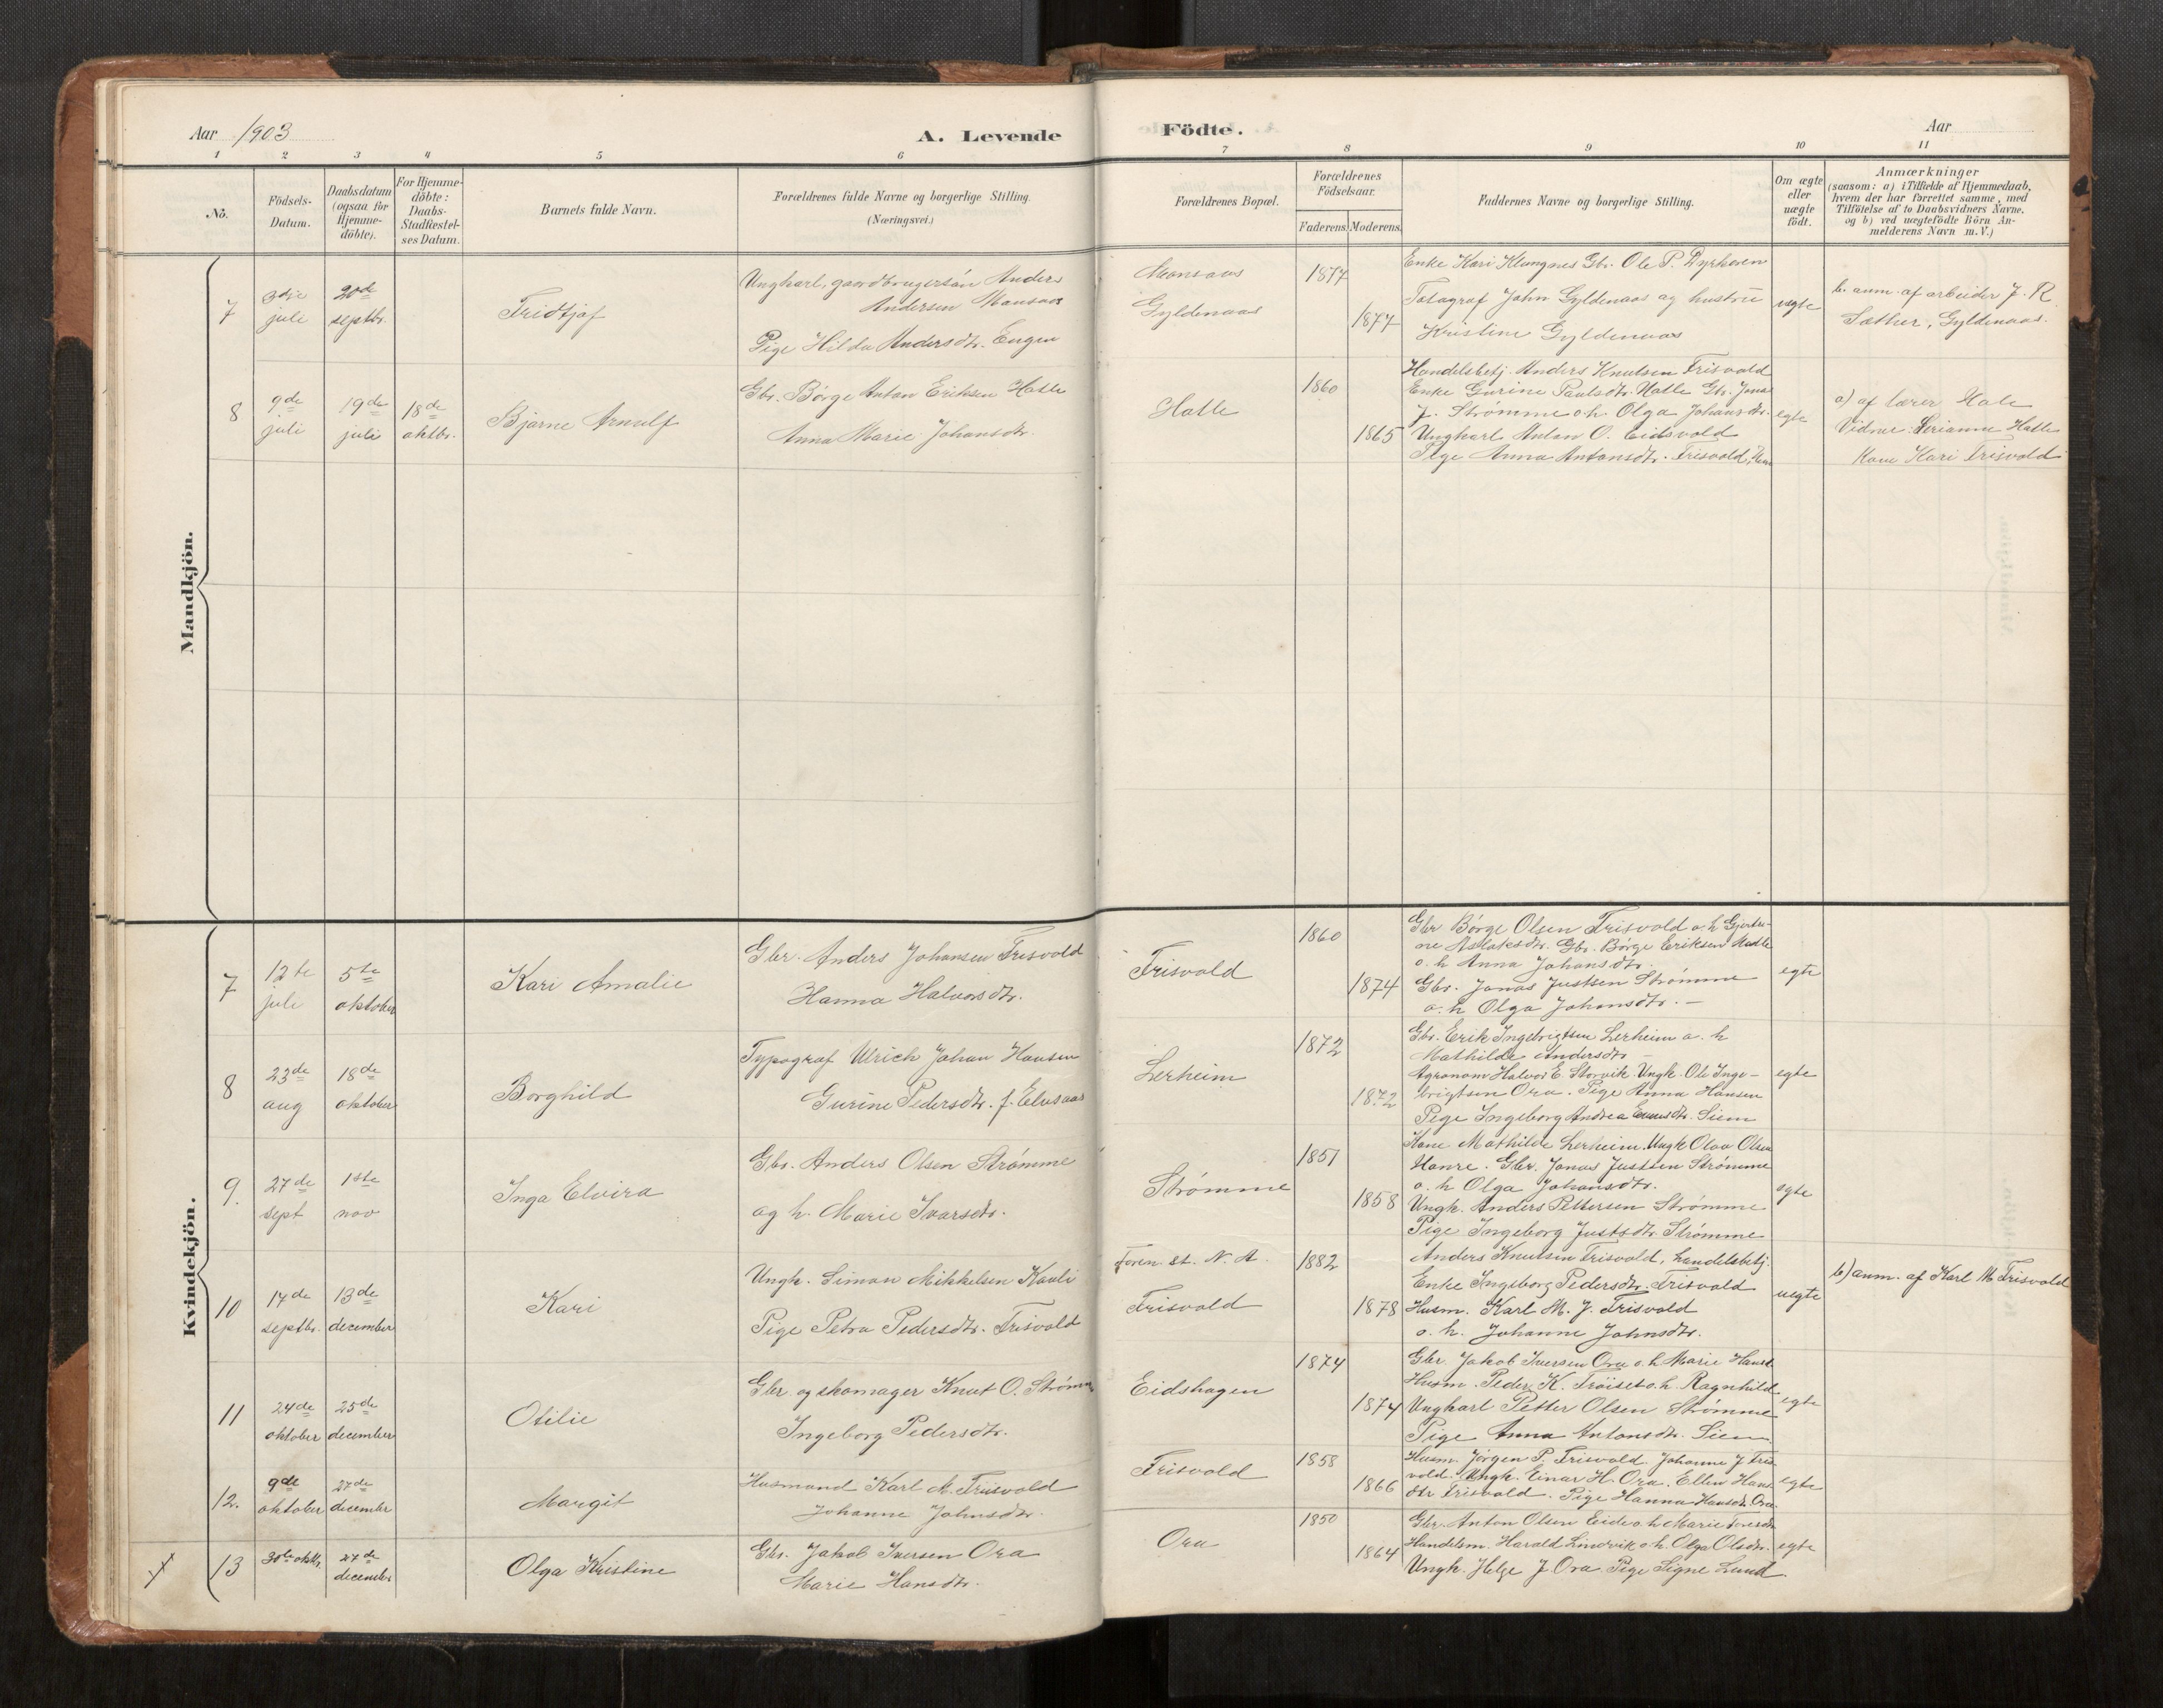 Aar 1903
A. Levende
Födte.
Aar
1 2 3 4 5 6 7 8 9 10 11
No.
Födsels-
Datum.
Daabsdatum
(ogsaa for
Hjemme-
döbte).
For Hjemme-
döbte:
Daabs-
Stadfæstel-
ses Datum.
Barnets fulde Navn.
Forældrenes fulde Navne og borgerlige Stilling.
(Næringsvei.)
Forældrenes Bopæl.
Forældrenes
Födselsaar.
Faderens. Moderens.
Faddernes Navne og borgerlige Stilling.
Om ægte
eller
uægte
födt.
Anmærkninger
(saasom: a) i Tilfælde af Hjemmedaab,
hvem der har forrettet samme, med
Tilföielse af to Daabsvidners Navne.
og b) ved uægtefödte Börn An-
melderens Navn m. V.)
Mandkjön.
7
3dje
juli
20de
septbr.
Fridtjof
Ungkarl, gaardbrugersön Anders
Andersen Monsaas
Pige Hilda Andersdtr. Eugen
Monsaas
Gyldenaas
1877
1877
Enke Kari Klungnes Gbr. Ole P. Dyrkoren
Fotograf John Gyldenaas og hustru
Kristine Gyldenaas
uægte
b. anm. af arbeider J. R.
Sæther, Gyldenaas.
8
9de
juli
19de
juli
18de
oktbr.
Bjarne Arnulf
Gbr. Børge Anton Eriksen Hatle
Anna Marie Johansdtr.
Hatle
1860
1865
Handelsbetj. Anders Knutsen Frisvold
Enke Gurine Paulsdtr. Hatle Gbr. Jonas
J. Strømme o.h. Olga Johansdtr.
Ungkarl Anton O. Eidsvold
Pige Anna Antonsdtr. Frisvold,
egte
a) af lærer Hale
Vidner: Serianne Hatle
Kone Kari Frisvold
Kvindekjön.
7
12te
juli
5te
oktober
Kari Amalie
Gbr. Anders Johansen Frisvold
Hanna Halvorsdtr.
Frisvold
1860
1874
Gbr Børge Olsen Frisvold o.h Gjertru-
ne Aslaksdtr. Gbr. Børge Eriksen Hatle
o. h Anna Johansdtr.
Gbr. Jonas Justsen Strømme
o. h Olga Johansdtr. –
egte
8
23de
aug
18de
oktober
Borghild
Typograf Ulrich Johan Hansen
Gurine Pedersdtr. f. Elvsaas
Lerheim
1872
1872
Gbr. Erik Ingebrigtsen Lerheim o. h
Mathilde Andersdtr –
Agronom Halvor E. Storvik. Ungk. Ole Inge-
brigtsen Ora. Pige Anna Hansen
Pige Ingeborg Andrea Evensdtr. Siem
egte
9.
27de
sept
1ste
nov
Inga Elvira
Gbr. Anders Olsen Strømme
og h. Marie Ivarsdtr.
Strømme
1851
1858
Kone Mathilde Lerheim. Ungk Olav Olsen
Hanre. Gbr. Jonas Justsen Strømme
o. h Olga Johansdtr.
Ungk. Anders Pettersen Strømme
Pige Ingeborg Justsdtr. Strømme
egte
10
17de
septbr.
13de
december
Kari
Ungk. Simon Mikkelsen Kavli
Pige Petra Pedersdtr. Frisvold
Foren. st. N. A.
Frisvold
1882
1878
Anders Knutsen Frisvold, handelsbetj.
Enke Ingeborg Pedersdtr. Frisvold
Husm. Karl M. J. Frisvold
o. h. Johanne Johnsdtr.
uegte
b) anm. af Karl M. Frisvold
11
24de
oktober
25de
december
Otilie
Gbr. og skomager Knut O. Strømme
Ingeborg Pedersdtr.
Eidshagen
1874
1874
Gbr Jakob Iversen Ora o.h Marie Hansd.
Husm. Peder K. Trøiset o. h. Ragnhild
Ungkarl Petter Olsen Strømme
Pige Anna Antonsdtr. Siem
egte
12.
9de
oktober
27de
december
Margit
Husmand Karl M. Frisvold
Johanne Johnsdtr.
Frisvold
1858
1866
Husm. Jørgen P. Frisvold. Johanne J Fris-
vold. Ungk. Einar H. Ora. Ellen Hans-
dtr Frisvold. Pige Hanna Hansdtr. Ora.
egte
13
30te oktbr.
27de
december
Olga Kristine
Gbr. Jakob Iversen Ora
Marie Hansdtr.
Ora
1850
1864
Gbr. Anton Olsen Eide o. h Marie Toresdtr
Handelsm. Harald Lindvik o.h. Olga Olsdtr.
Ungk. Helge J Ora Pige Signe Lund.
egte